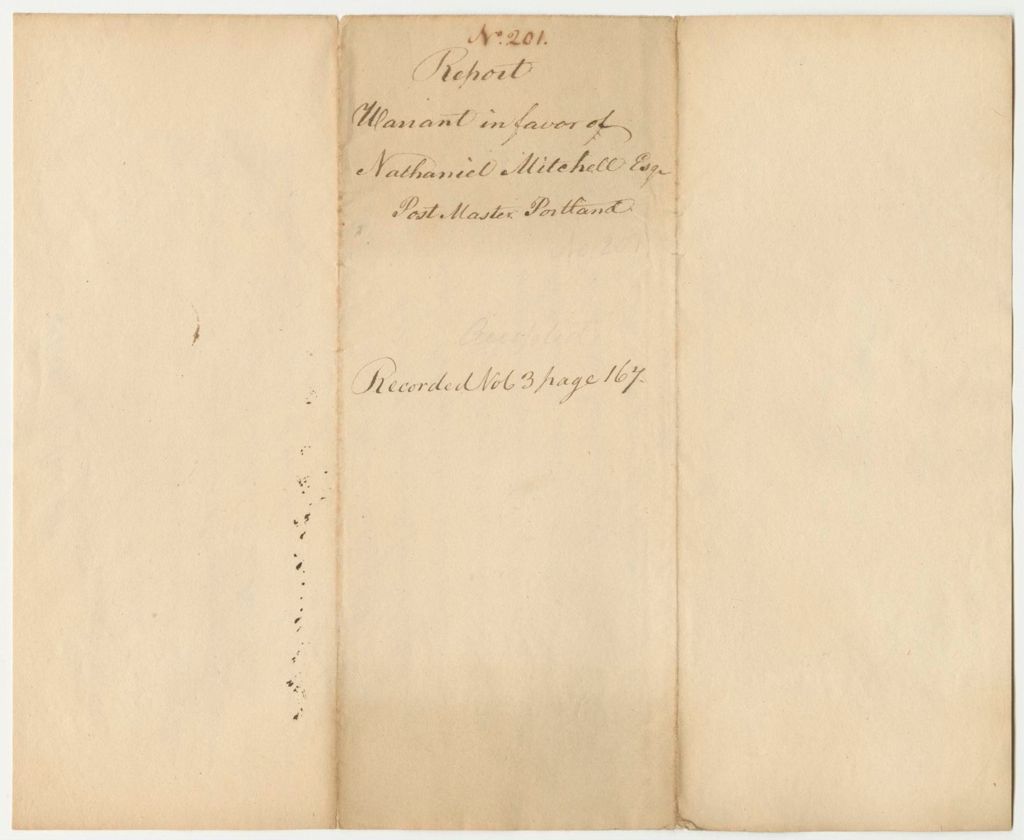 No. 201.
Report
Warrant in favor of
Nathaniel Mitchell Esqr
Post Master Portland
No. 201
Accepted
Recorded Vol 3 page 167.